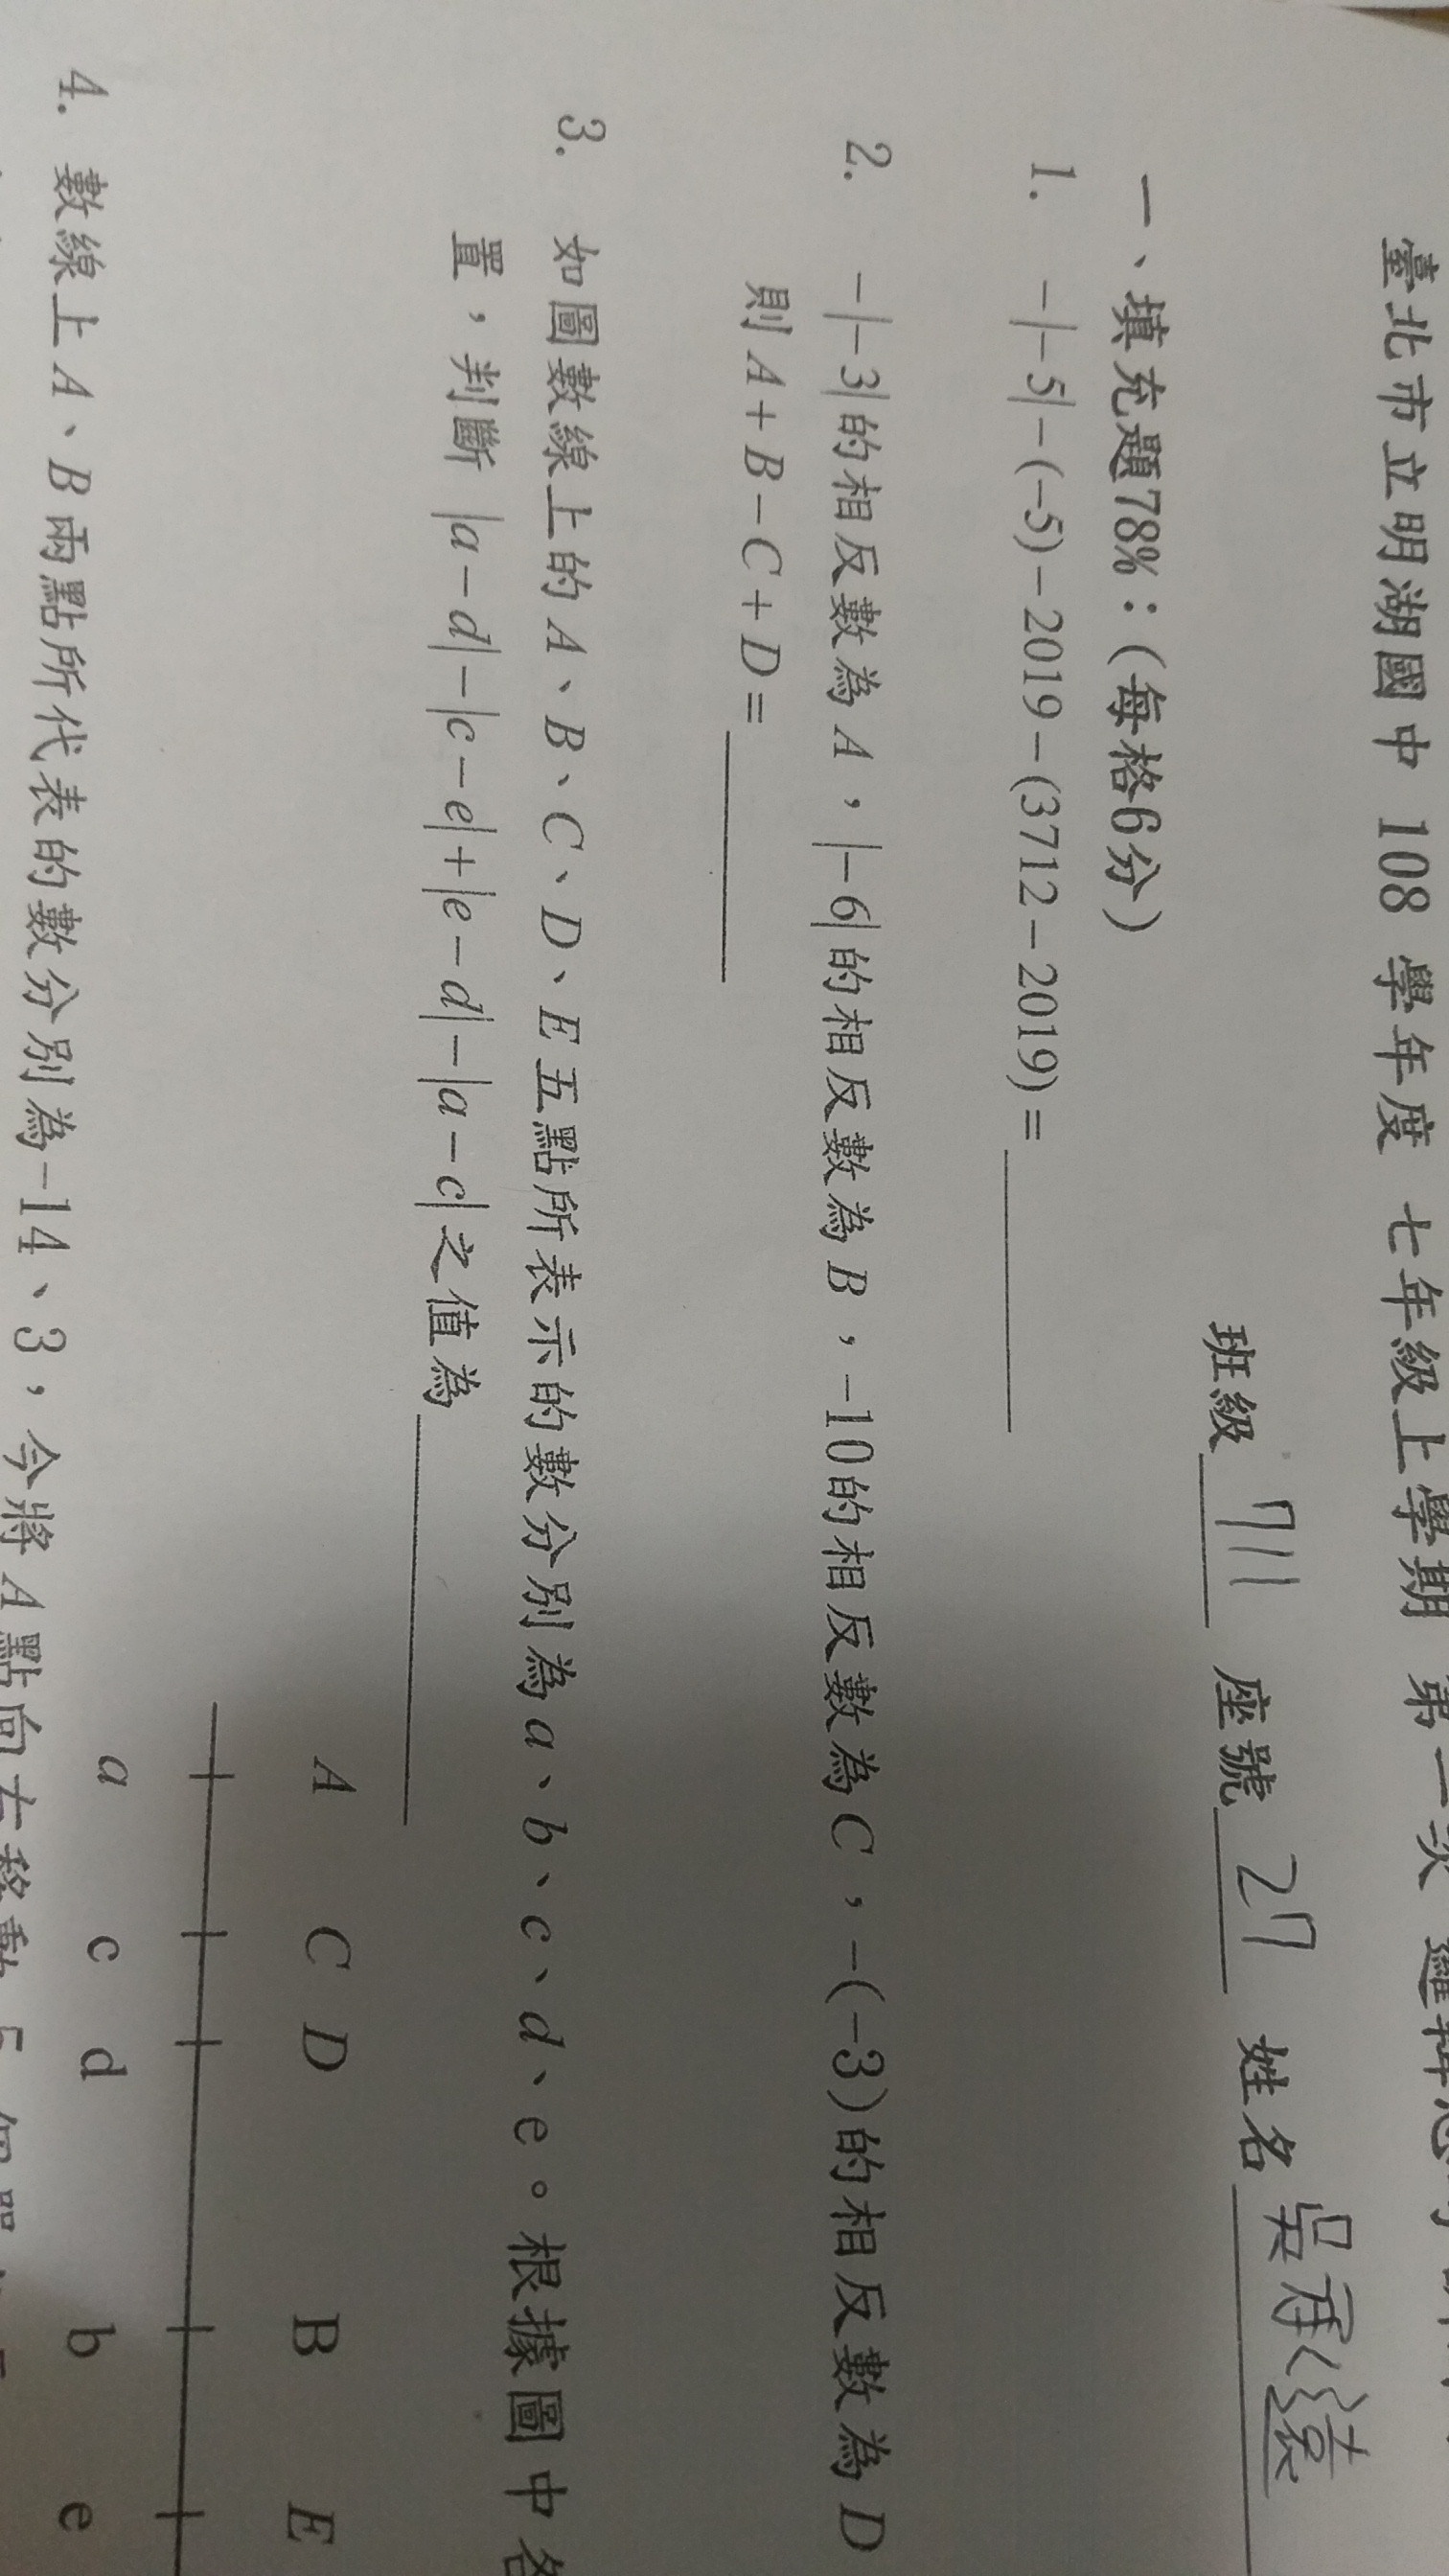 臺北市立明湖國中 108 學年度 七年級上學期 第一次
班級 711 座號 27 姓名 吳
一、填充題78%：(每格6分)
1. -|-5|-(-5)-2019-(3712-2019)=
2. -|-3|的相反數為A，|-6|的相反數為B，-10的相反數為C，-(-3)的相反數為D
則A+B-C+D=
3. 如圖數線上的A、B、C、D、E五點所表示的數分別為a、b、c、d、e。根據圖中各
置，判斷|a-d|-|c-e|+|e-d|-|a-c|之值為
A C D B E
a c d b e
4. 數線上A、B兩點所代表的數分別為-14、3，今將A點向右移動